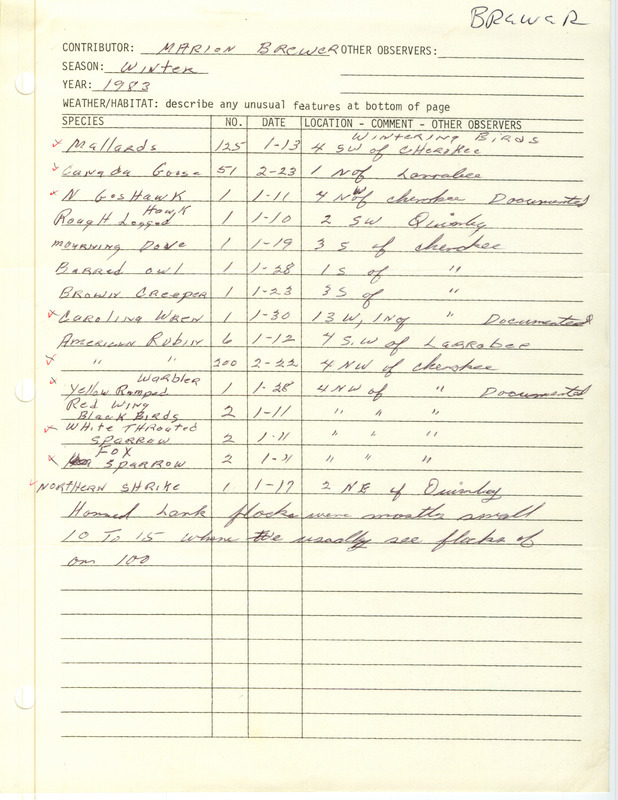 BREWER
CONTRIBUTOR: MARION BREWER OTHER OBSERVERS:
SEASON: WINTER
YEAR: 1983
WEATHER/HABITAT: describe any unusual features at bottom of page
SPECIES NO. DATE LOCATION - COMMENT - OTHER OBSERVERS
WINTERING BIRDS
Mallards 125 1-13 4 SW of CHEROKEE
Canada Goose 51 2-23 1 N of Larrabee
N GosHawk 1 1-11 4 NW of cherokee Documented
Rough Legged Hawk 1 1-10 2 SW Quimby
mourning Dove 1 1-19 3 S of cherokee
Barred owl 1 1-28 1 S of "
Brown Creeper 1 1-23 3 S of "
Carolina Wren 1 1-30 13 W, 1 N of " Documented
American Robin 6 1-12 4 S.W of Larrabee
" " 200 2-22 4 NW of cherokee
Yellow Rumped Warbler 1 1-28 4 NW of " Documented
Red Wing
Black Birds 2 1-11 " " "
White Throated
Sparrow 2 1-11 " " "
Fox Sparrow 2 1-11 " " "
Northern Shrike 1 1-17 2 NE of Quimby
Horned Lark flocks were mostly small
10 To 15 where we usually see flocks of
over 100